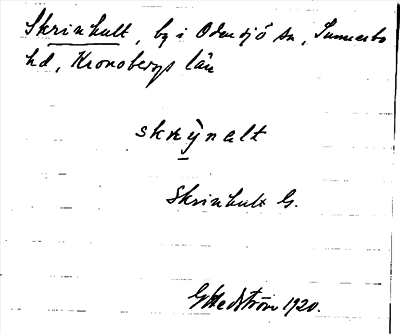 Skrinhult, by i Odensjö sn, Sunnerbo
hd, Kronobergs län
skrỳnalt
Skrinhult G.
G Hedström 1920.